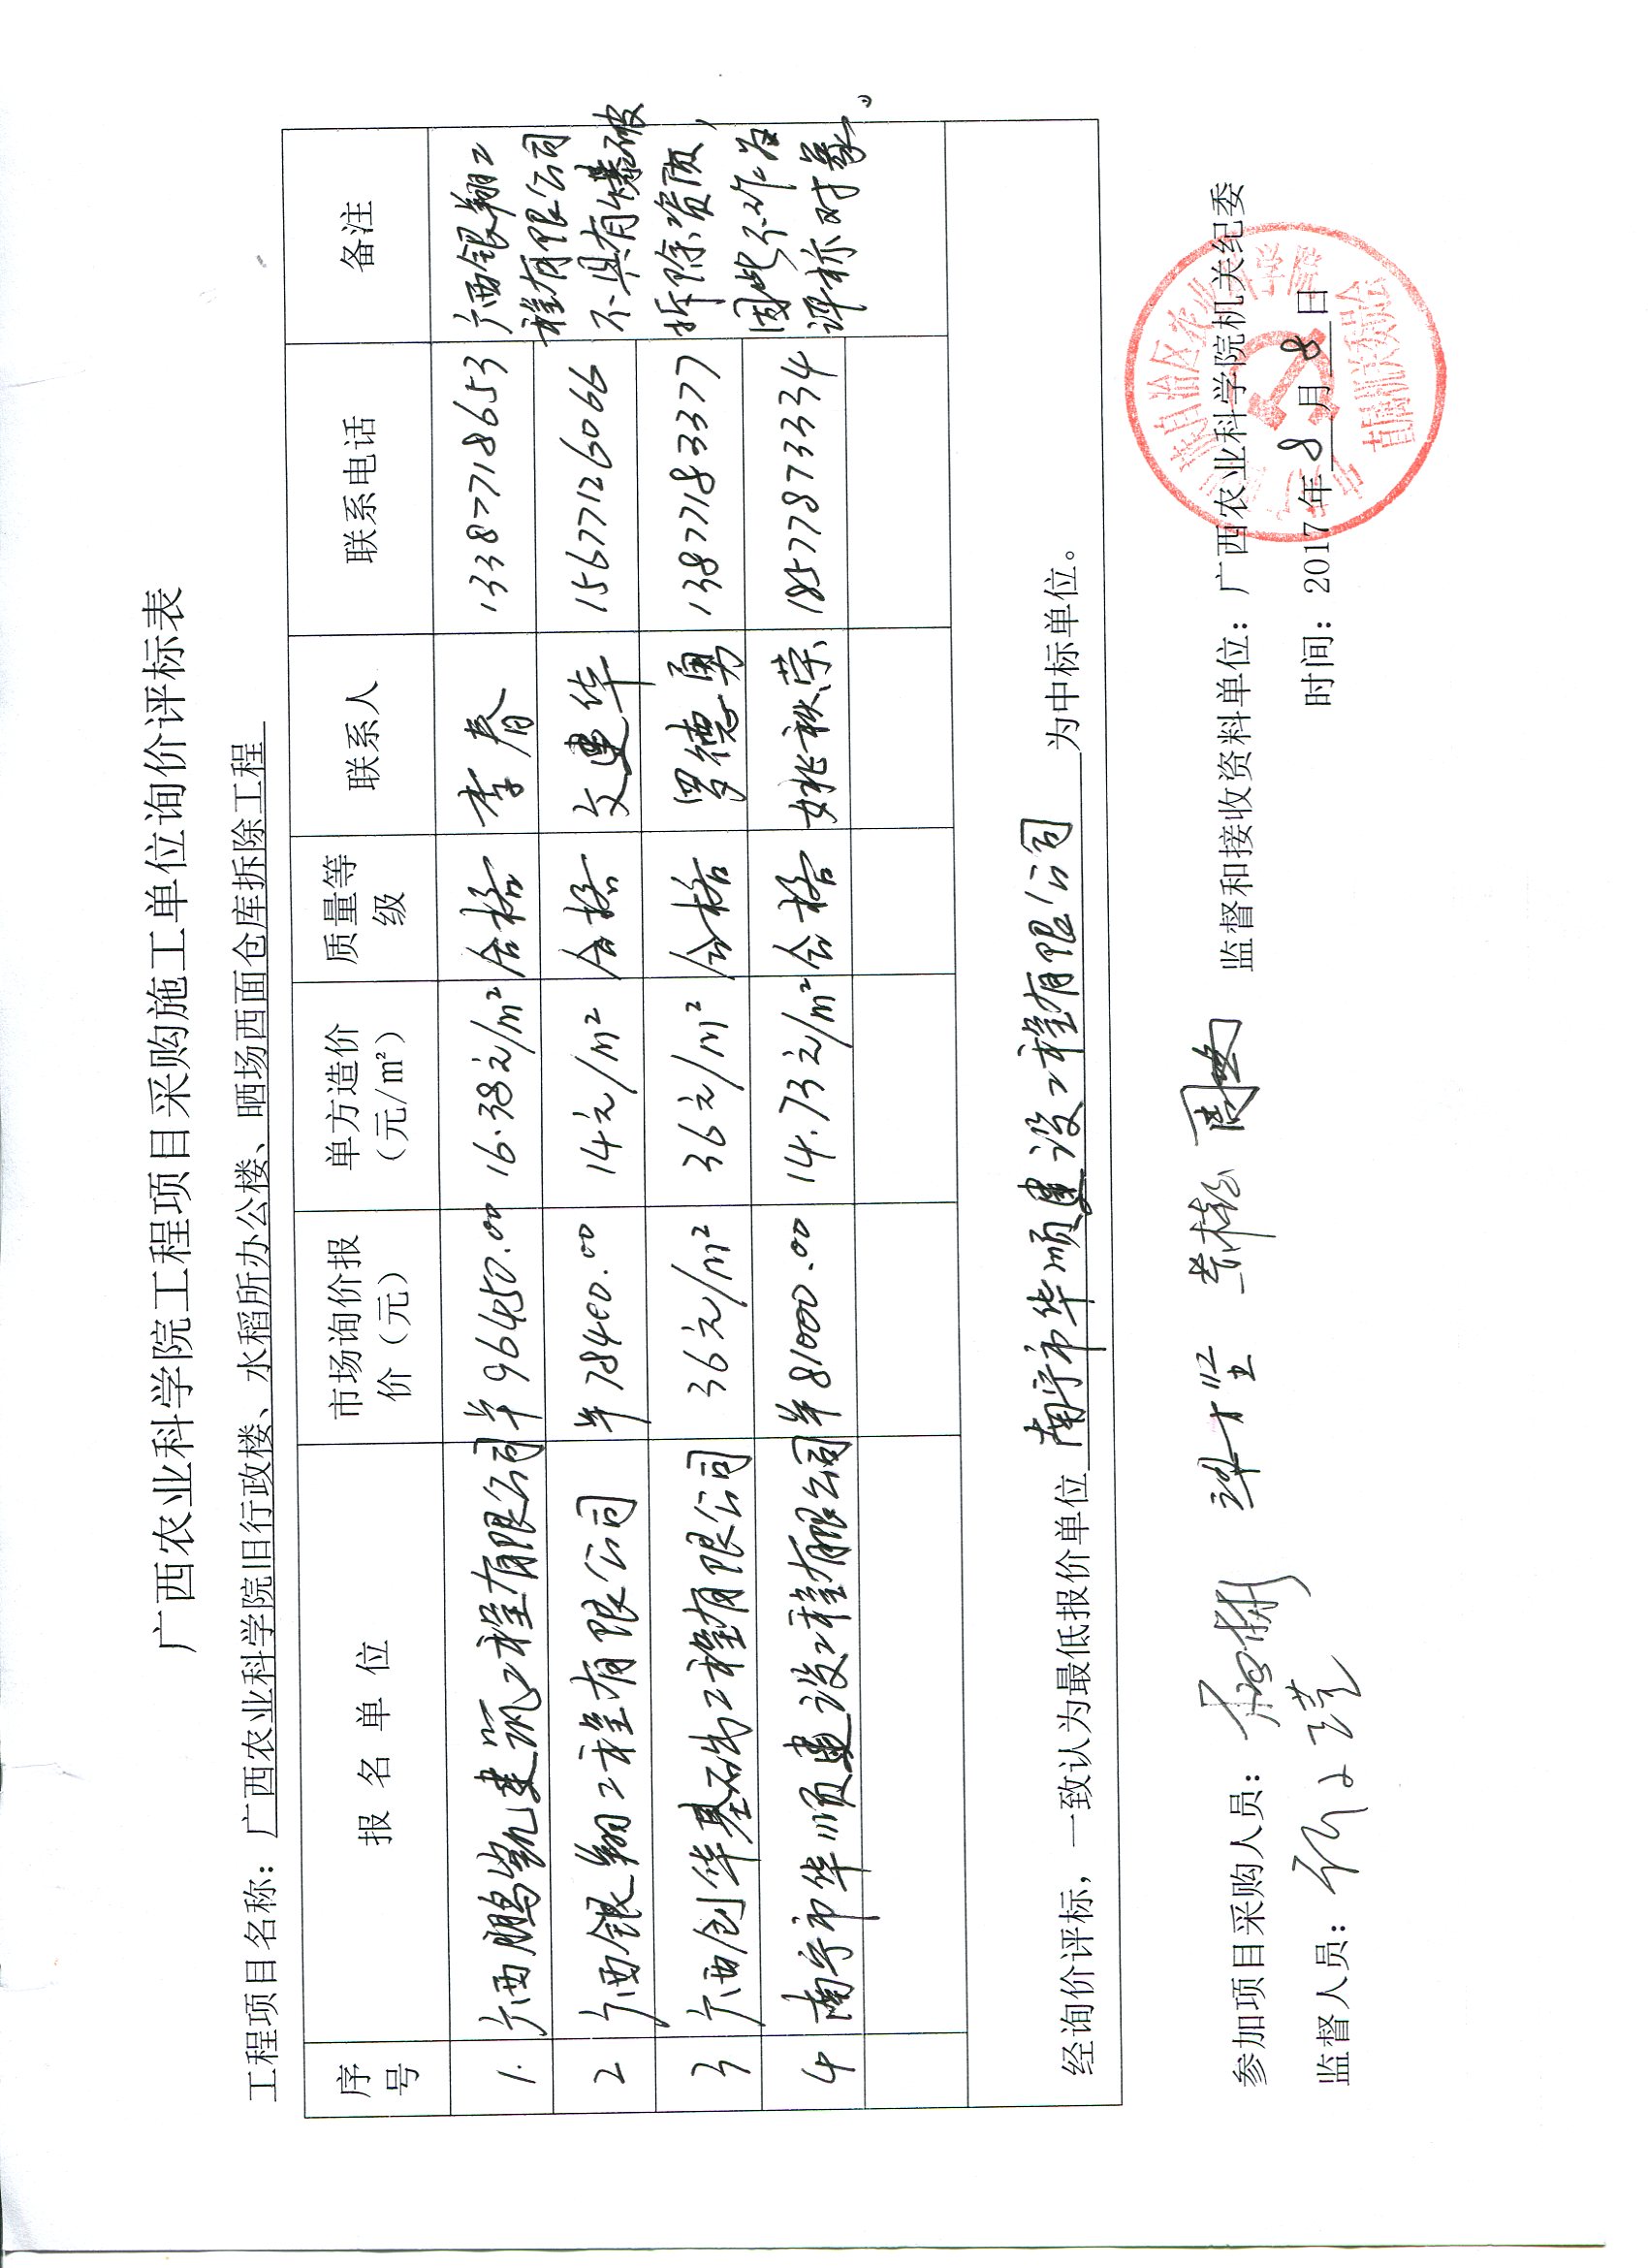 广西农业科学院工程项目采购施工单位询价评标表
工程项目名称：广西农业科学院旧行政楼、水稻所办公楼、晒场西面仓库拆除工程
序号 报名单位 市场询价报价（元） 单方造价（元/㎡） 质量等级 联系人 联系电话 备注
1. 广西鹏凯建筑工程有限公司 ¥96450.00 16.38元/m² 合格 李春 13387718653
2 广西银翔工程有限公司 ¥78400.00 14元/m² 合格 文建华 15677126066
3 广西创华基础工程有限公司 36元/m² 36元/m² 合格 罗德勇 13877183377
4 南宁市华顺建设工程有限公司 ¥81000.00 14.73元/m² 合格 姚秋荣 18577873334
广西银翔工
程有限公司
不具有爆破
拆除资质，
因此不作为
评标对象。
经询价评标，一致认为最低报价单位南宁市华顺建设工程有限公司为中标单位。
参加项目采购人员：
监督和接收资料单位：广西农业科学院机关纪委
监督人员：
时间：2017年8月8日
直属机关委员会